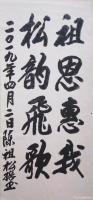 祖思惠我
松韵飛歌
二〇一九年四月二日陈祖松